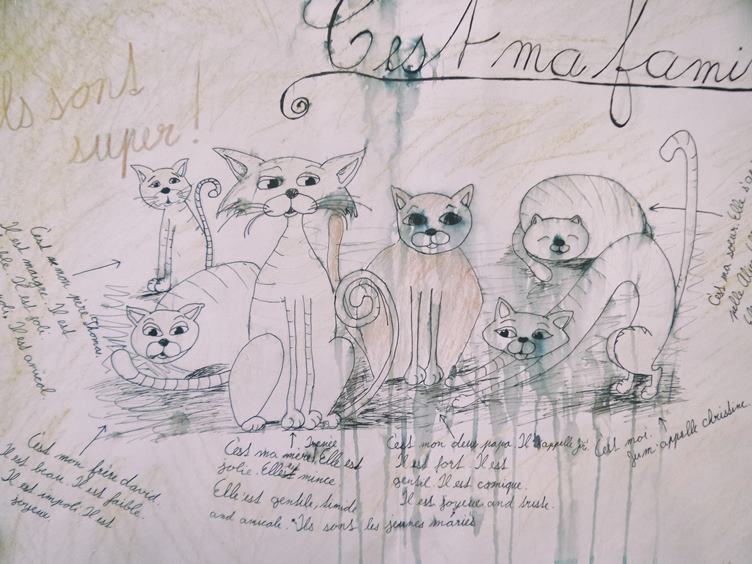 C'est ma fami
ls sont
super!
C'est mon père Thomas
Il est maigre. Il est
Il est joli
Il est amical
C'est ma sœur. Elle
C'est mon frère david.
Il est beau. Il est faible.
Il est impoli. Il est
joyeux
C'est ma mère, Elle est
jolie. Elle est mince
Elle est gentile, timide
and amicale. Ils sont les jeunes mariés
C'est mon deux papa. Il appelle
Il est fort. Il est
gentil. Il est comique.
Il est joyeux and triste.
C'est moi.
Je m'appelle christine.